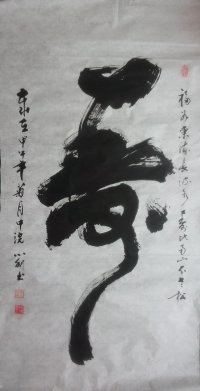 福如東海長流水 壽比南山不老松
壽
歲在甲午年菊月中浣